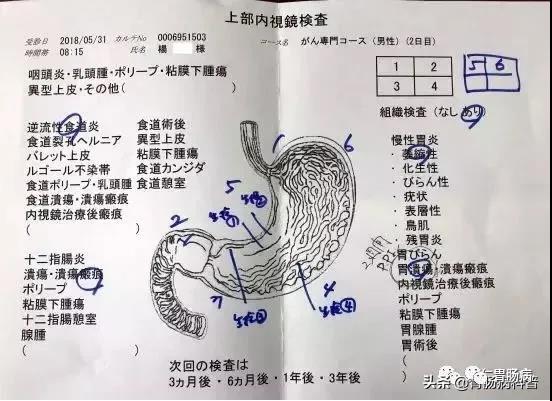 上部内視鏡検査
受診日 2018/05/31 カルテNo 0006951503
時間帯 08:15 氏名 楊 様
コース名 がん専門コース(男性)(2日目)
咽頭炎・乳頭腫・ポリープ・粘膜下腫瘍
異型上皮・その他( )
1 2
3 4
5 6
組織検査(なし あり)
逆流性食道炎 食道術後
食道裂孔ヘルニア 異型上皮
バレット上皮 粘膜下腫瘍
ルゴール不染帯 食道カンジダ
食道ポリープ・乳頭腫 食道憩室
食道潰瘍・潰瘍瘢痕
内視鏡治療後瘢痕
( )
十二指腸炎
潰瘍・潰瘍瘢痕
ポリープ
粘膜下腫瘍
十二指腸憩室
腺腫
( )
1
6
5
2
7
4
生検①
生検②
生検③
生検④
慢性胃炎
・萎縮性
・化生性
・びらん性
・疣状
・表層性
・鳥肌
・残胃炎
胃びらん
胃潰瘍・潰瘍瘢痕
内視鏡治療後瘢痕
ポリープ
粘膜下腫瘍
胃腺腫
胃術後
( )
PPI
次回の検査は
3ヵ月後・6ヵ月後・1年後・3年後
仁胃肠病
头条@胃肠病科普